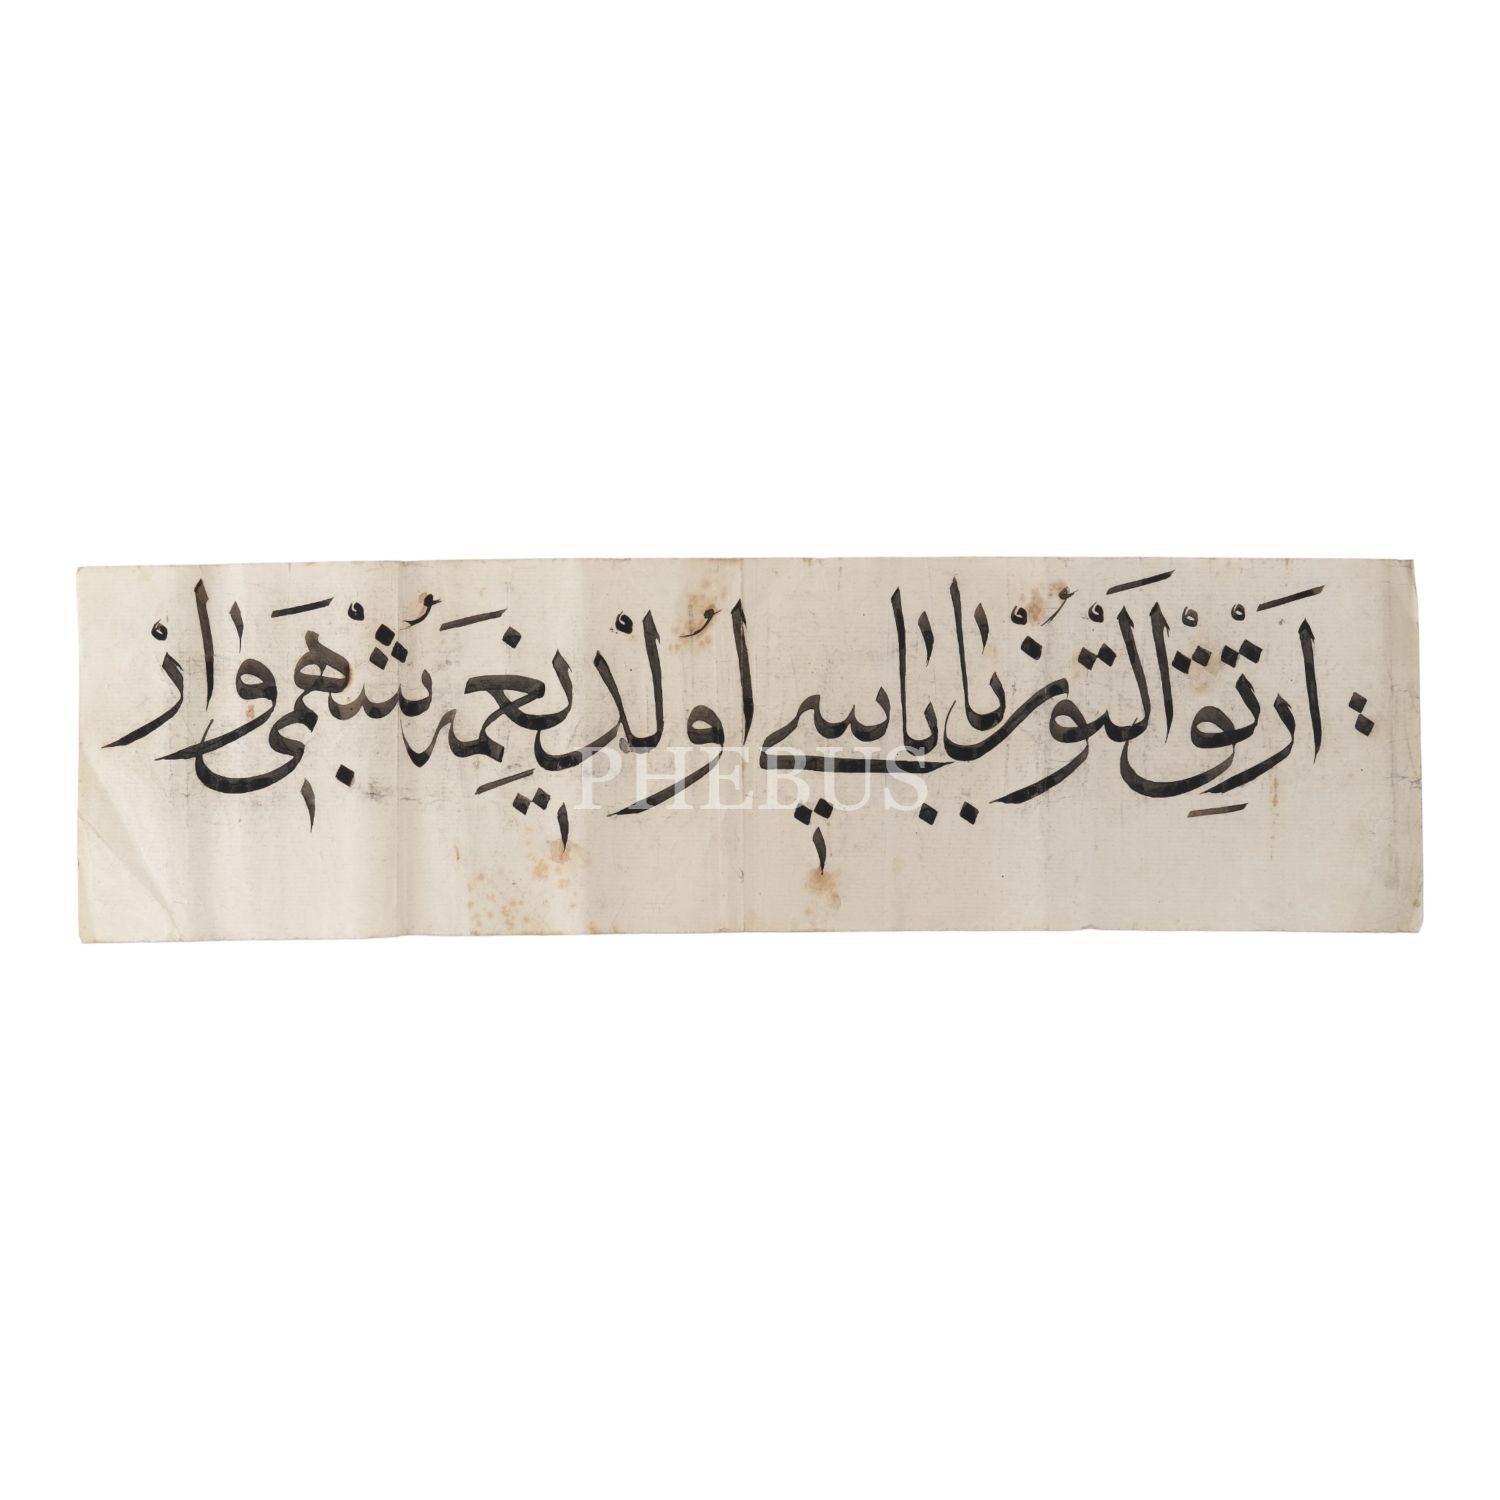 ارتق التوز باباسي اولديغمه شبهمى وار
PHEBUS